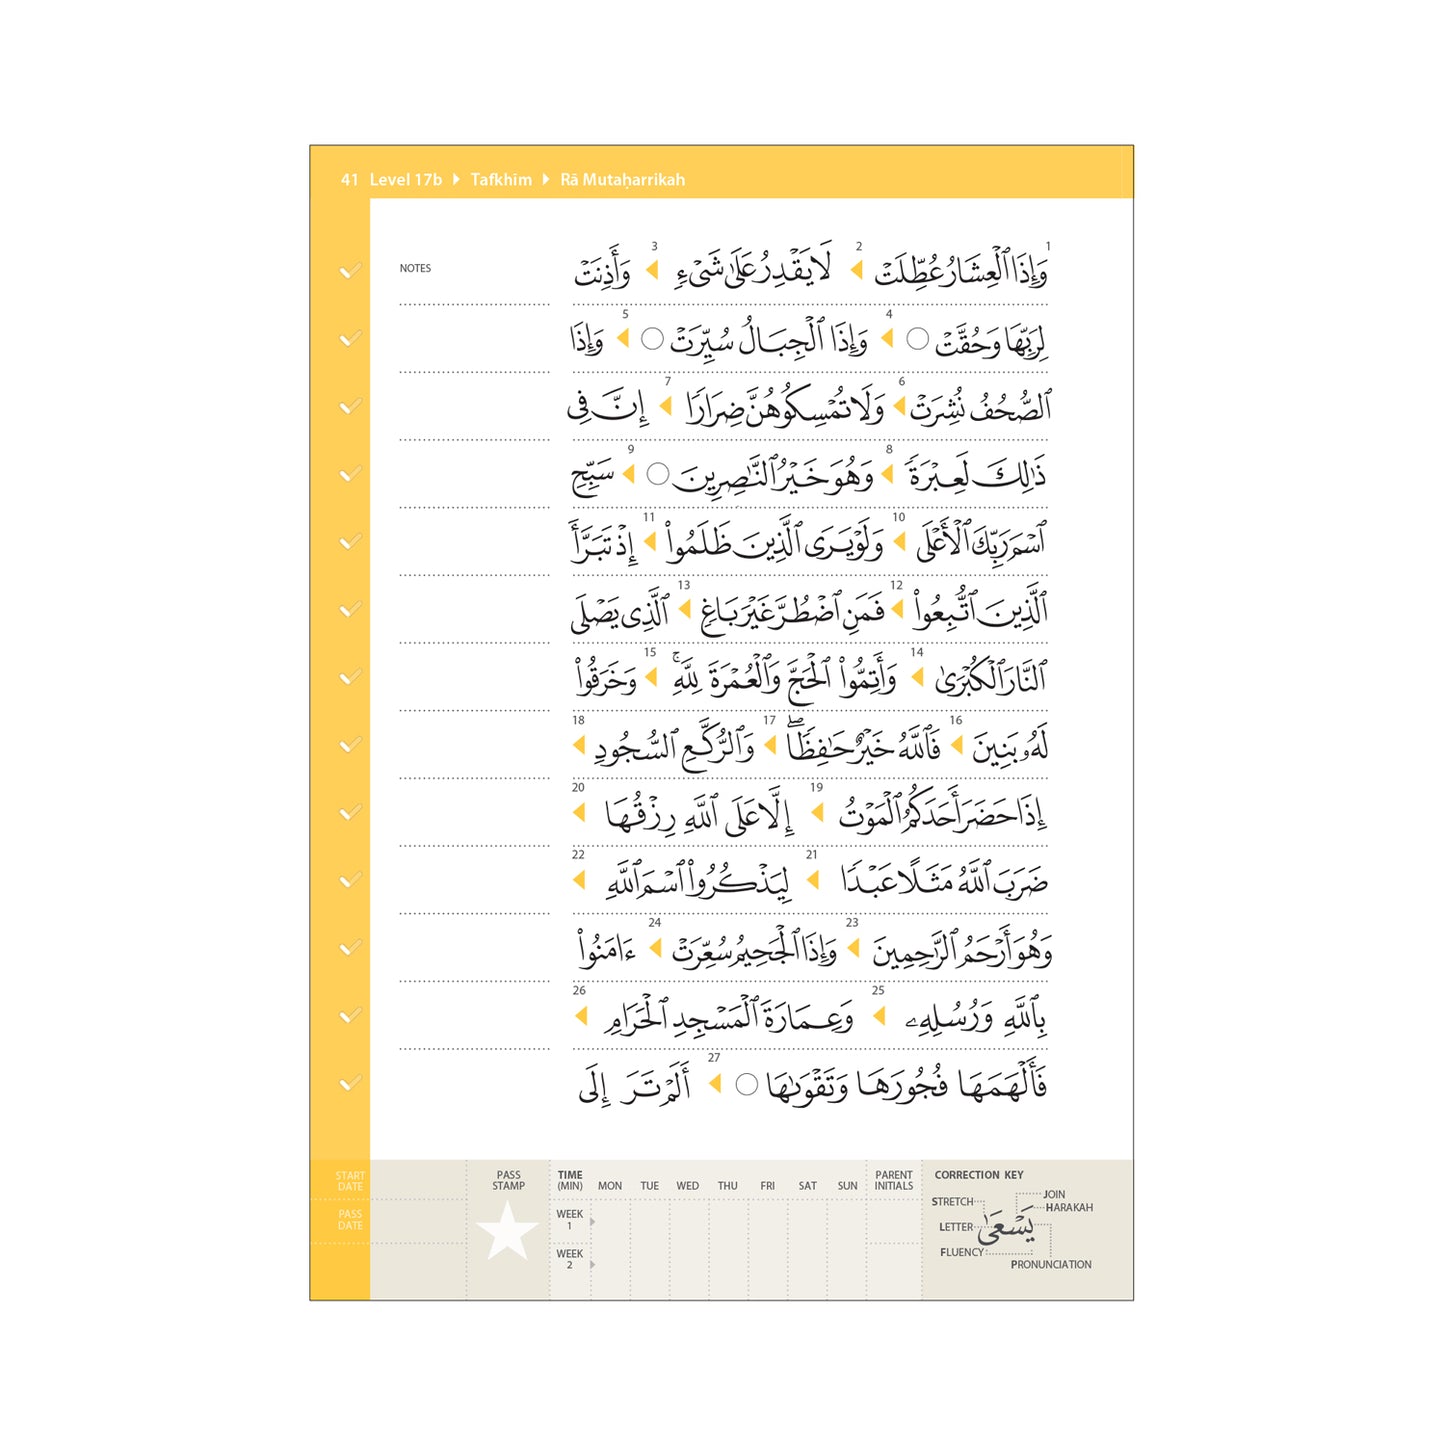 41 Level 17b Tafkhīm Rā Mutaḥarrikah
NOTES
1 وَإِذَا ٱلْعِشَارُ عُطِّلَتْ 2 لَا يَقْدِرُ عَلَىٰ شَىْءٍ 3 وَأَذِنَتْ
لِرَبِّهَا وَحُقَّتْ 4 وَإِذَا ٱلْجِبَالُ سُيِّرَتْ 5 وَإِذَا
ٱلصُّحُفُ نُشِرَتْ 6 وَلَا تُمْسِكُوهُنَّ ضِرَارًا 7 إِنَّ فِى
ذَٰلِكَ لَعِبْرَةً 8 وَهُوَ خَيْرُ ٱلنَّـٰصِرِينَ 9 سَبِّحِ
ٱسْمَ رَبِّكَ ٱلْأَعْلَى 10 وَلَوْ يَرَى ٱلَّذِينَ ظَلَمُوا۟ 11 إِذْ تَبَرَّأَ
ٱلَّذِينَ ٱتُّبِعُوا۟ 12 فَمَنِ ٱضْطُرَّ غَيْرَ بَاغٍ 13 ٱلَّذِى يَصْلَى
ٱلنَّارَ ٱلْكُبْرَىٰ 14 وَأَتِمُّوا۟ ٱلْحَجَّ وَٱلْعُمْرَةَ لِلَّهِ ۚ 15 وَخَرَقُوا۟
لَهُۥ بَنِينَ 16 فَٱللَّهُ خَيْرٌ حَـٰفِظًا ۖ 17 وَٱلرُّكَّعِ ٱلسُّجُودِ 18
إِذَا حَضَرَ أَحَدَكُمُ ٱلْمَوْتُ 19 إِلَّا عَلَى ٱللَّهِ رِزْقُهَا 20
ضَرَبَ ٱللَّهُ مَثَلًا عَبْدًا 21 لِيَذْكُرُوا۟ ٱسْمَ ٱللَّهِ 22
وَهُوَ أَرْحَمُ ٱلرَّٰحِمِينَ 23 وَإِذَا ٱلْجَحِيمُ سُعِّرَتْ 24 ءَامَنُوا۟
بِٱللَّهِ وَرُسُلِهِۦ 25 وَعِمَارَةَ ٱلْمَسْجِدِ ٱلْحَرَامِ 26
فَأَلْهَمَهَا فُجُورَهَا وَتَقْوَىٰهَا 27 أَلَمْ تَرَ إِلَى
START DATE
PASS DATE
PASS STAMP
TIME (MIN) MON TUE WED THU FRI SAT SUN
WEEK 1
WEEK 2
PARENT INITIALS
CORRECTION KEY
STRETCH
JOIN
HARAKAH
LETTER
يَسْعَىٰ
FLUENCY
PRONUNCIATION